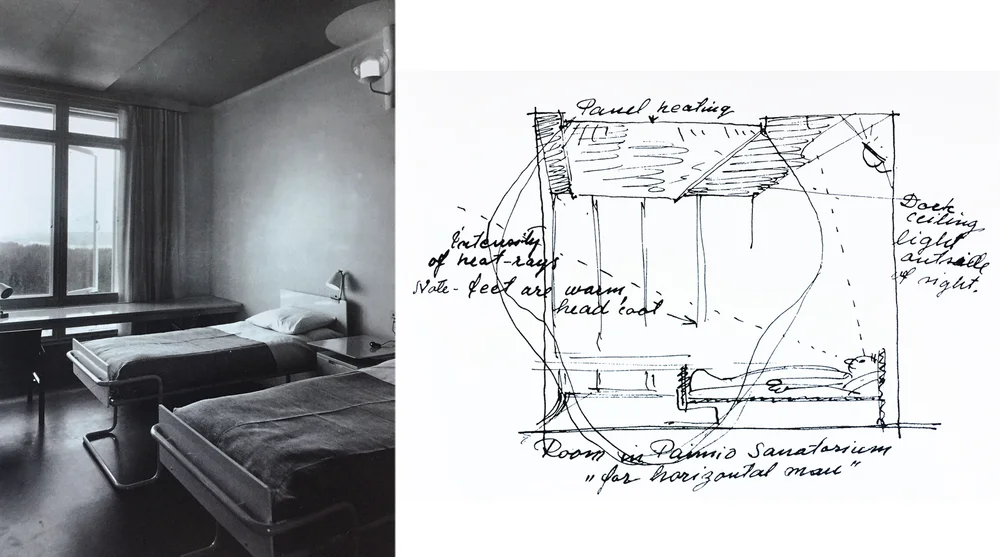 Panel heating
Dark
ceiling
light
outside
of sight.
Intensity
of heat-rays
Note - feet are warm,
head cool
Room in Paimio Sanatorium
"for horizontal man"